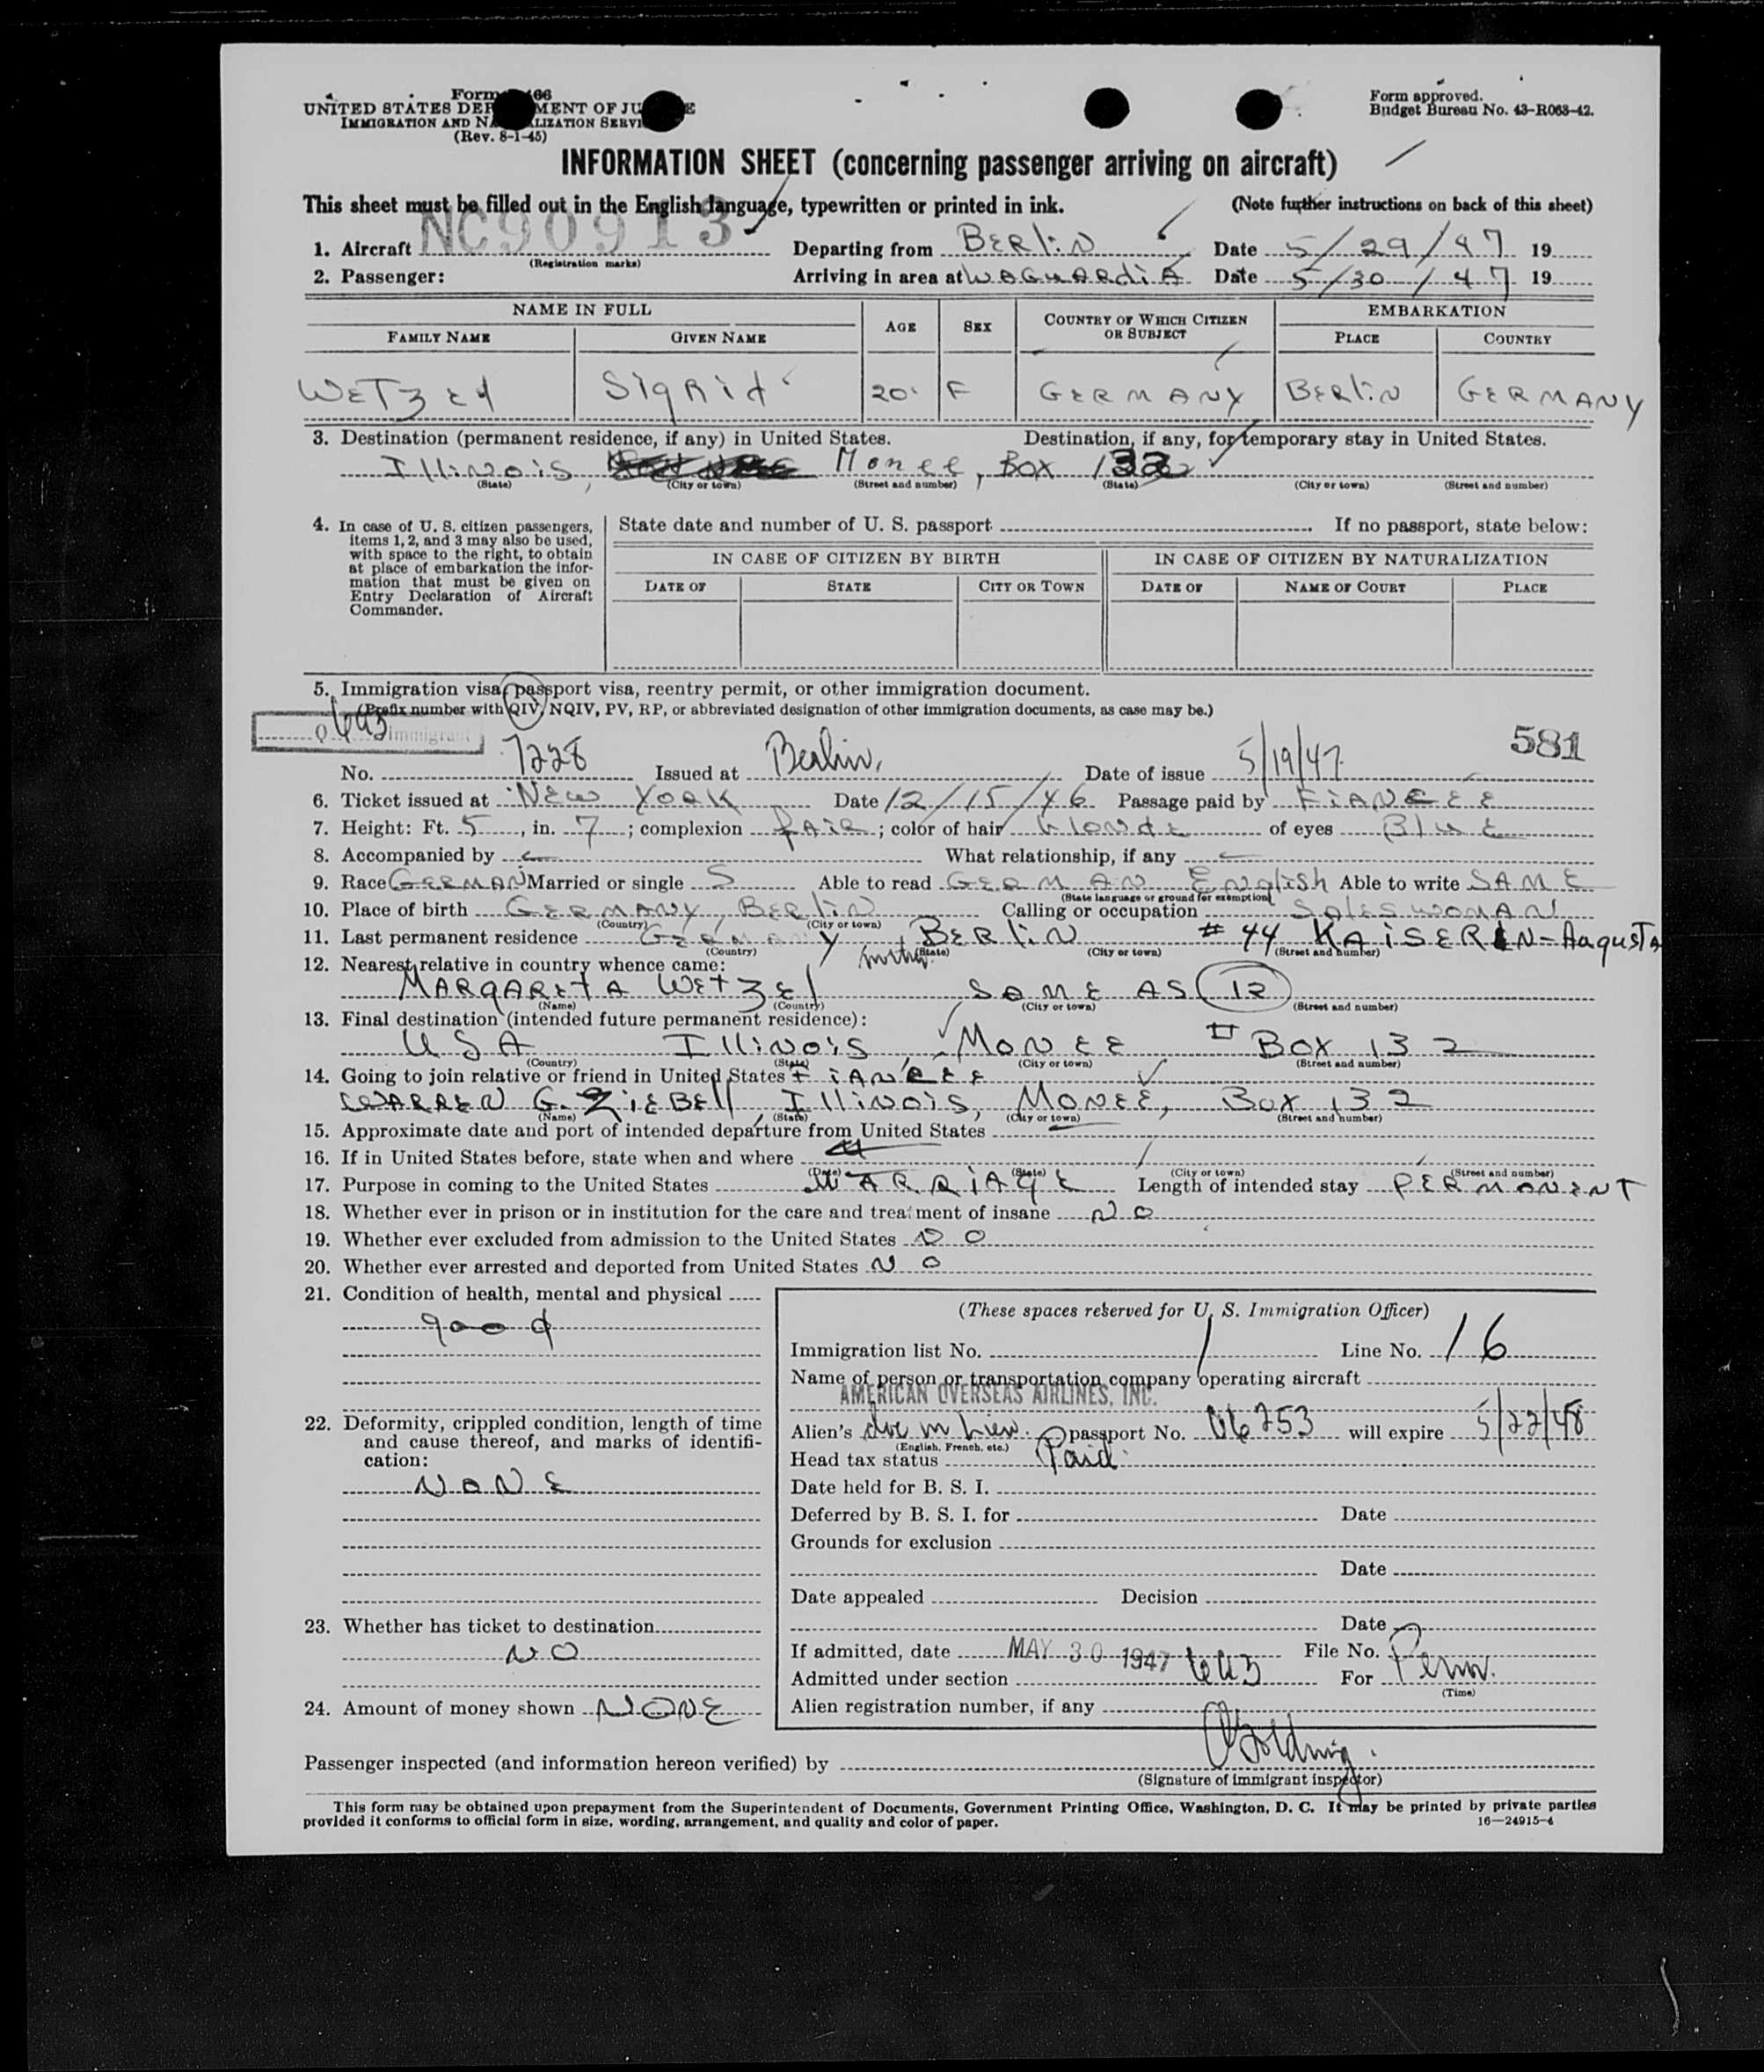 Form 66
UNITED STATES DEP MENT OF JU E
IMMIGRATION AND NA LIZATION SERVI
(Rev. 8-1-45)
Form approved.
Budget Bureau No. 43-R063-42.
INFORMATION SHEET (concerning passenger arriving on aircraft)
This sheet must be filled out in the English language, typewritten or printed in ink. (Note further instructions on back of this sheet)
1. Aircraft NC90913 Departing from BERLIN Date 5/29/47 19
(Registration marks)
2. Passenger: Arriving in area at LAGUARDIA Date 5/30/47 19
NAME IN FULL AGE SEX COUNTRY OF WHICH CITIZEN OR SUBJECT EMBARKATION
FAMILY NAME GIVEN NAME PLACE COUNTRY
WETZEL Sigrid 20 F GERMANY BERLIN GERMANY
3. Destination (permanent residence, if any) in United States. Destination, if any, for temporary stay in United States.
Illinois, Monee, Box 132
(State) (City or town) (Street and number) (State) (City or town) (Street and number)
4. In case of U. S. citizen passengers, items 1, 2, and 3 may also be used, with space to the right, to obtain at place of embarkation the information that must be given on Entry Declaration of Aircraft Commander.
State date and number of U. S. passport If no passport, state below:
IN CASE OF CITIZEN BY BIRTH IN CASE OF CITIZEN BY NATURALIZATION
DATE OF STATE CITY OR TOWN DATE OF NAME OF COURT PLACE
5. Immigration visa, passport visa, reentry permit, or other immigration document.
(Prefix number with QIV, NQIV, PV, RP, or abbreviated designation of other immigration documents, as case may be.)
Immigrant
581
No. 7228 Issued at Berlin, Date of issue 5/19/47
6. Ticket issued at NEW YORK Date 12/15/46 Passage paid by FIANCÉE
7. Height: Ft. 5, in. 7; complexion FAIR; color of hair blonde of eyes BLUE
8. Accompanied by What relationship, if any
9. Race GERMAN Married or single S Able to read GERMAN English Able to write SAME
(State language or ground for exemption)
10. Place of birth GERMANY, BERLIN Calling or occupation SALESWOMAN
(Country) (City or town)
11. Last permanent residence GERMANY, BERLIN # 44 KAISERIN-AugusTA
(Country) (State) (City or town) (Street and number)
12. Nearest relative in country whence came: mother
MARGARETA WETZEL SAME AS 12
(Name) (Country) (City or town) (Street and number)
13. Final destination (intended future permanent residence):
USA Illinois, MONEE # BOX 132
(Country) (State) (City or town) (Street and number)
14. Going to join relative or friend in United States FIANCEE
WARREN G. ZIEBELL, Illinois, MONEE, Box 132
(Name) (State) (City or town) (Street and number)
15. Approximate date and port of intended departure from United States
16. If in United States before, state when and where
(Date) (State) (City or town) (Street and number)
17. Purpose in coming to the United States MARRIAGE Length of intended stay PERMONENT
18. Whether ever in prison or in institution for the care and treatment of insane NO
19. Whether ever excluded from admission to the United States NO
20. Whether ever arrested and deported from United States NO
21. Condition of health, mental and physical
good
22. Deformity, crippled condition, length of time and cause thereof, and marks of identification:
NONE
23. Whether has ticket to destination
NO
24. Amount of money shown NONE
(These spaces reserved for U. S. Immigration Officer)
Immigration list No. 1 Line No. 16
Name of person or transportation company operating aircraft
AMERICAN OVERSEAS AIRLINES, INC.
Alien's in Lieu passport No. 06253 will expire 5/22/48
(English, French, etc.)
Head tax status Paid
Date held for B. S. I.
Deferred by B. S. I. for Date
Grounds for exclusion
Date
Date appealed Decision
Date
If admitted, date MAY 30 1947 File No.
Admitted under section 6a3 For Perm.
(Time)
Alien registration number, if any
Passenger inspected (and information hereon verified) by
(Signature of immigrant inspector)
This form may be obtained upon prepayment from the Superintendent of Documents, Government Printing Office, Washington, D. C. It may be printed by private parties
provided it conforms to official form in size, wording, arrangement, and quality and color of paper. 16—24915-4